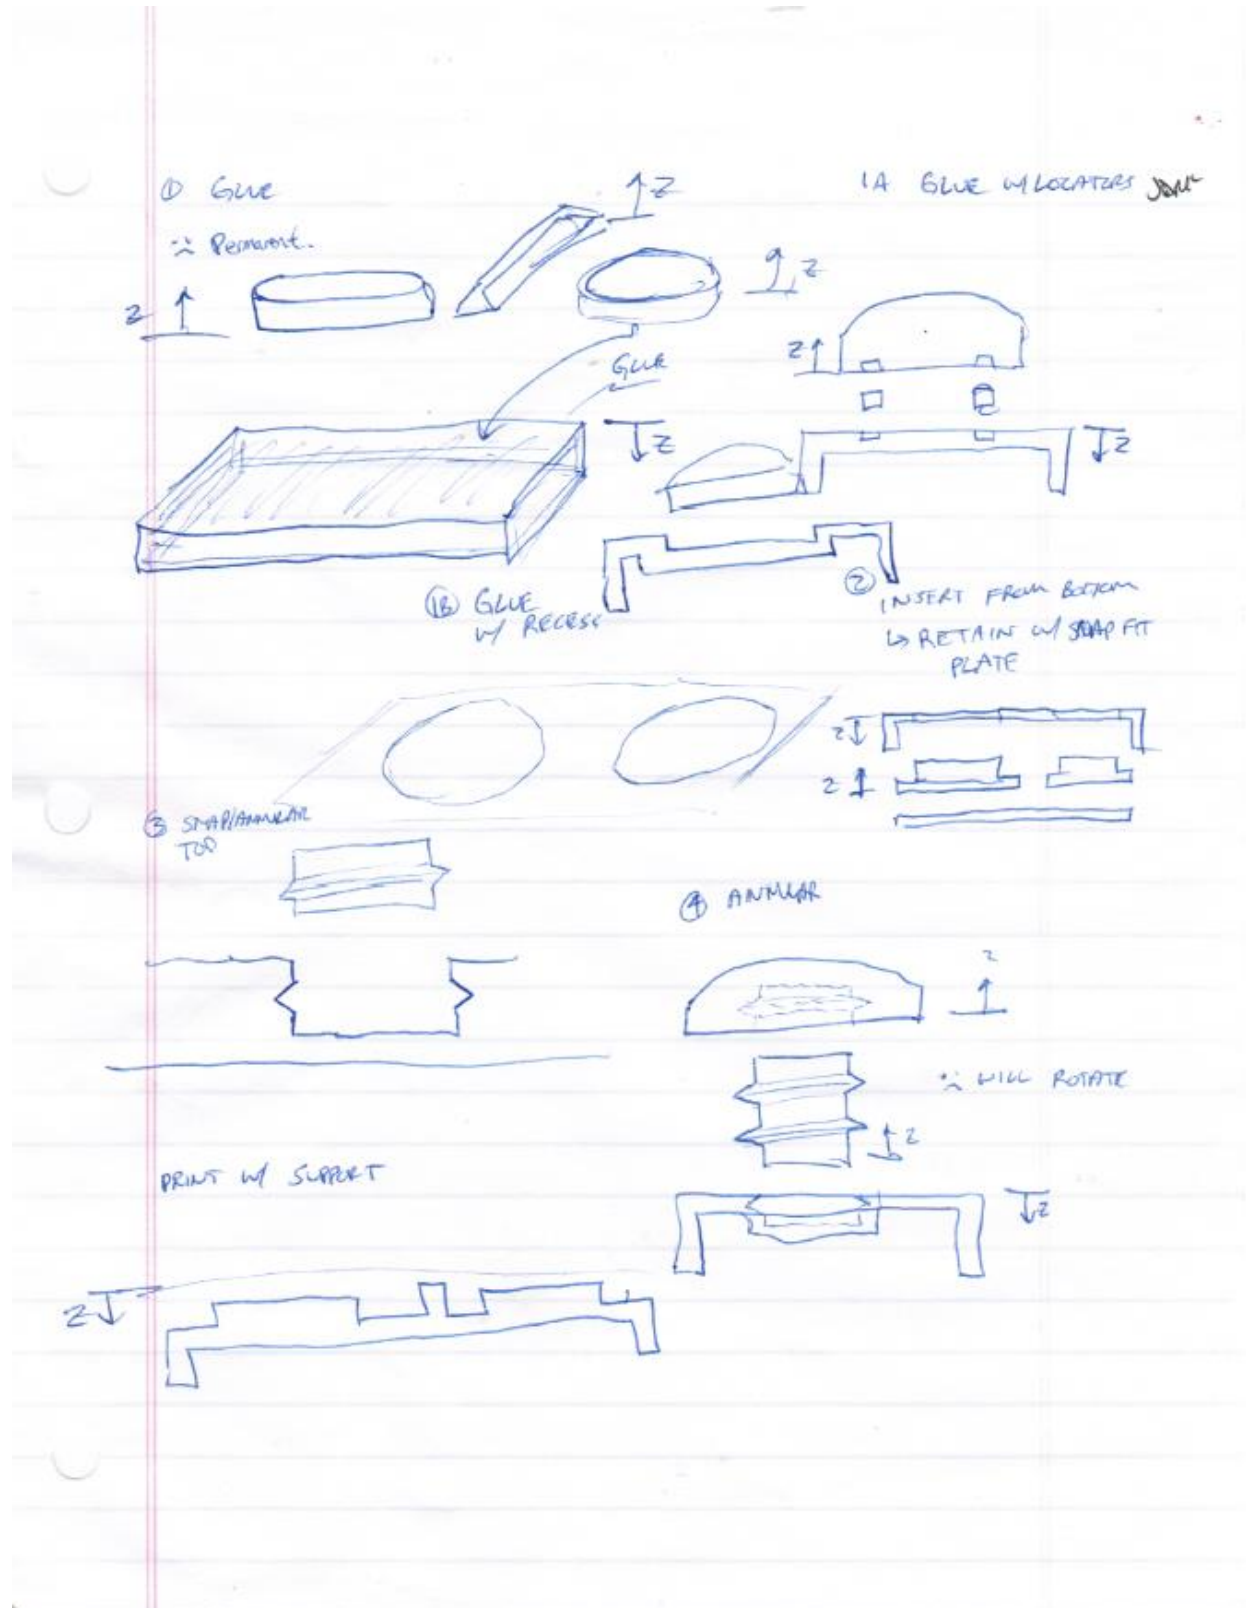 ① GLUE
1A GLUE W/ LOCATORS
Z
:( Permanent.
Z
Z
Z
GLUE
Z
Z
1B GLUE
W/ RECESS
② INSERT FROM BOTTOM
↳ RETAIN W/ SNAP FIT
PLATE
Z
Z
3 SNAP/ANNULAR
TOP
④ ANNULAR
Z
:( WILL ROTATE
Z
PRINT W/ SUPPORT
Z
Z